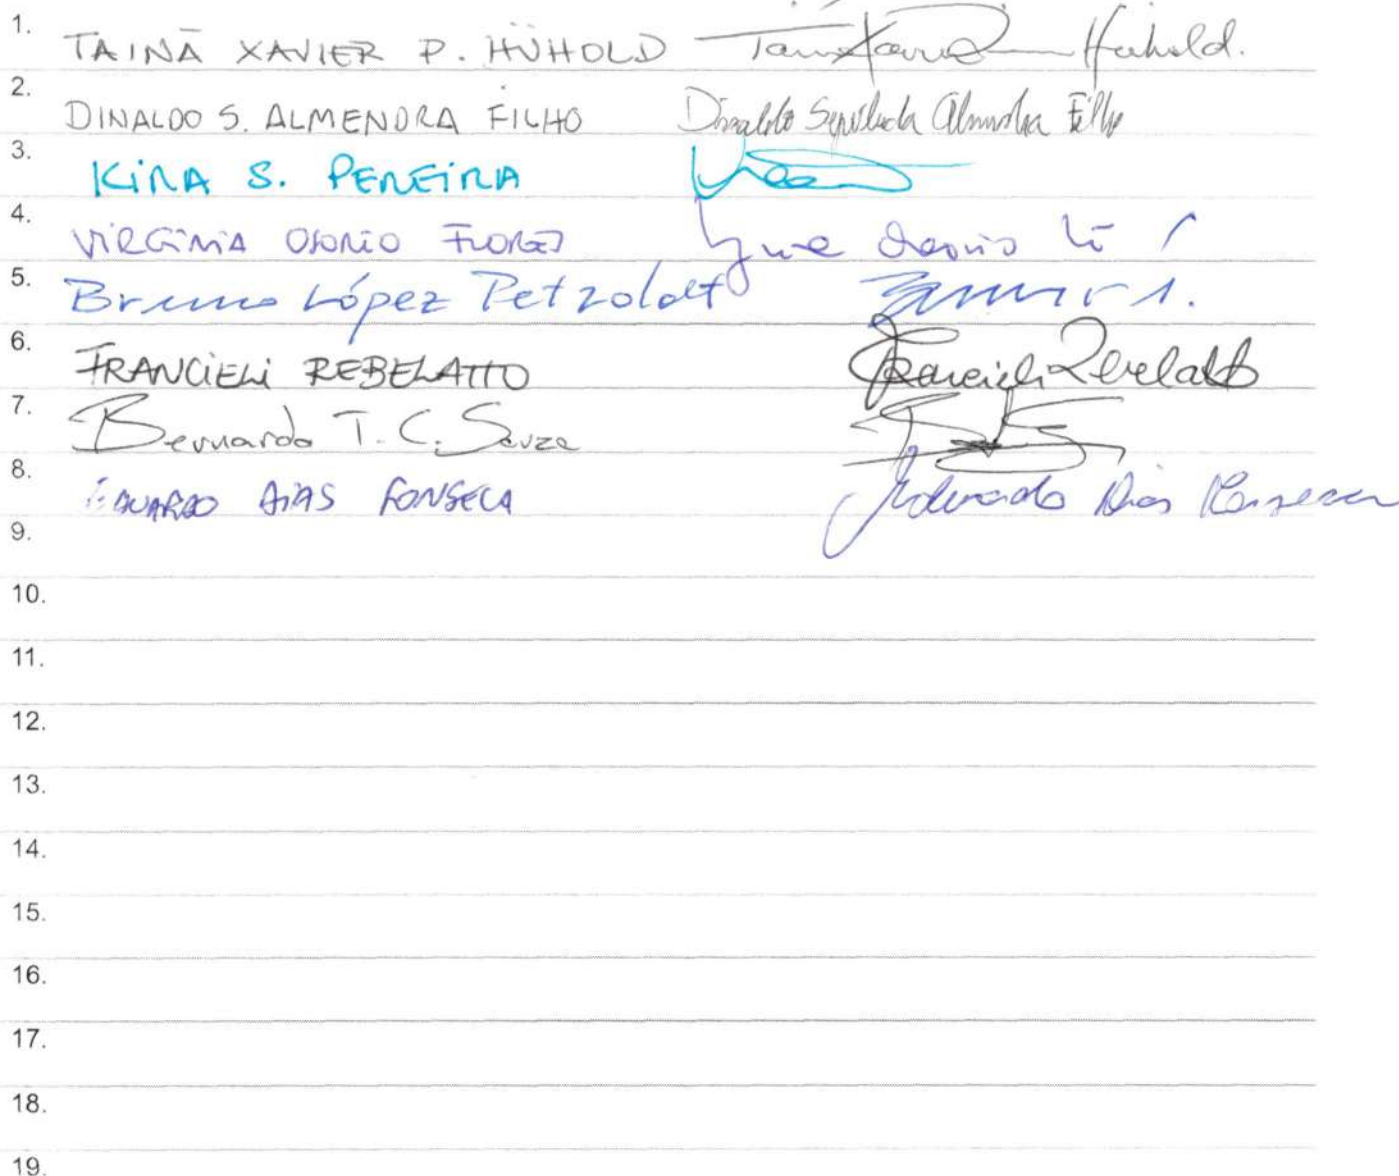 1. TAINÃ XAVIER P. HÜHOLD
2. DINALDO S. ALMENDRA FILHO Dinaldo Sepúlveda Almendra Filho
3. KIRA S. PEREIRA
4. VIRGINIA OSORIO FLORES
5. Bruno López Petzoldt
6. FRANCIELI REBELATTO Francieli Rebelatto
7. Bernardo T. C. Souza
8. EDUARDO DIAS FONSECA Eduardo Dias Fonseca
9.
10.
11.
12.
13.
14.
15.
16.
17.
18.
19.